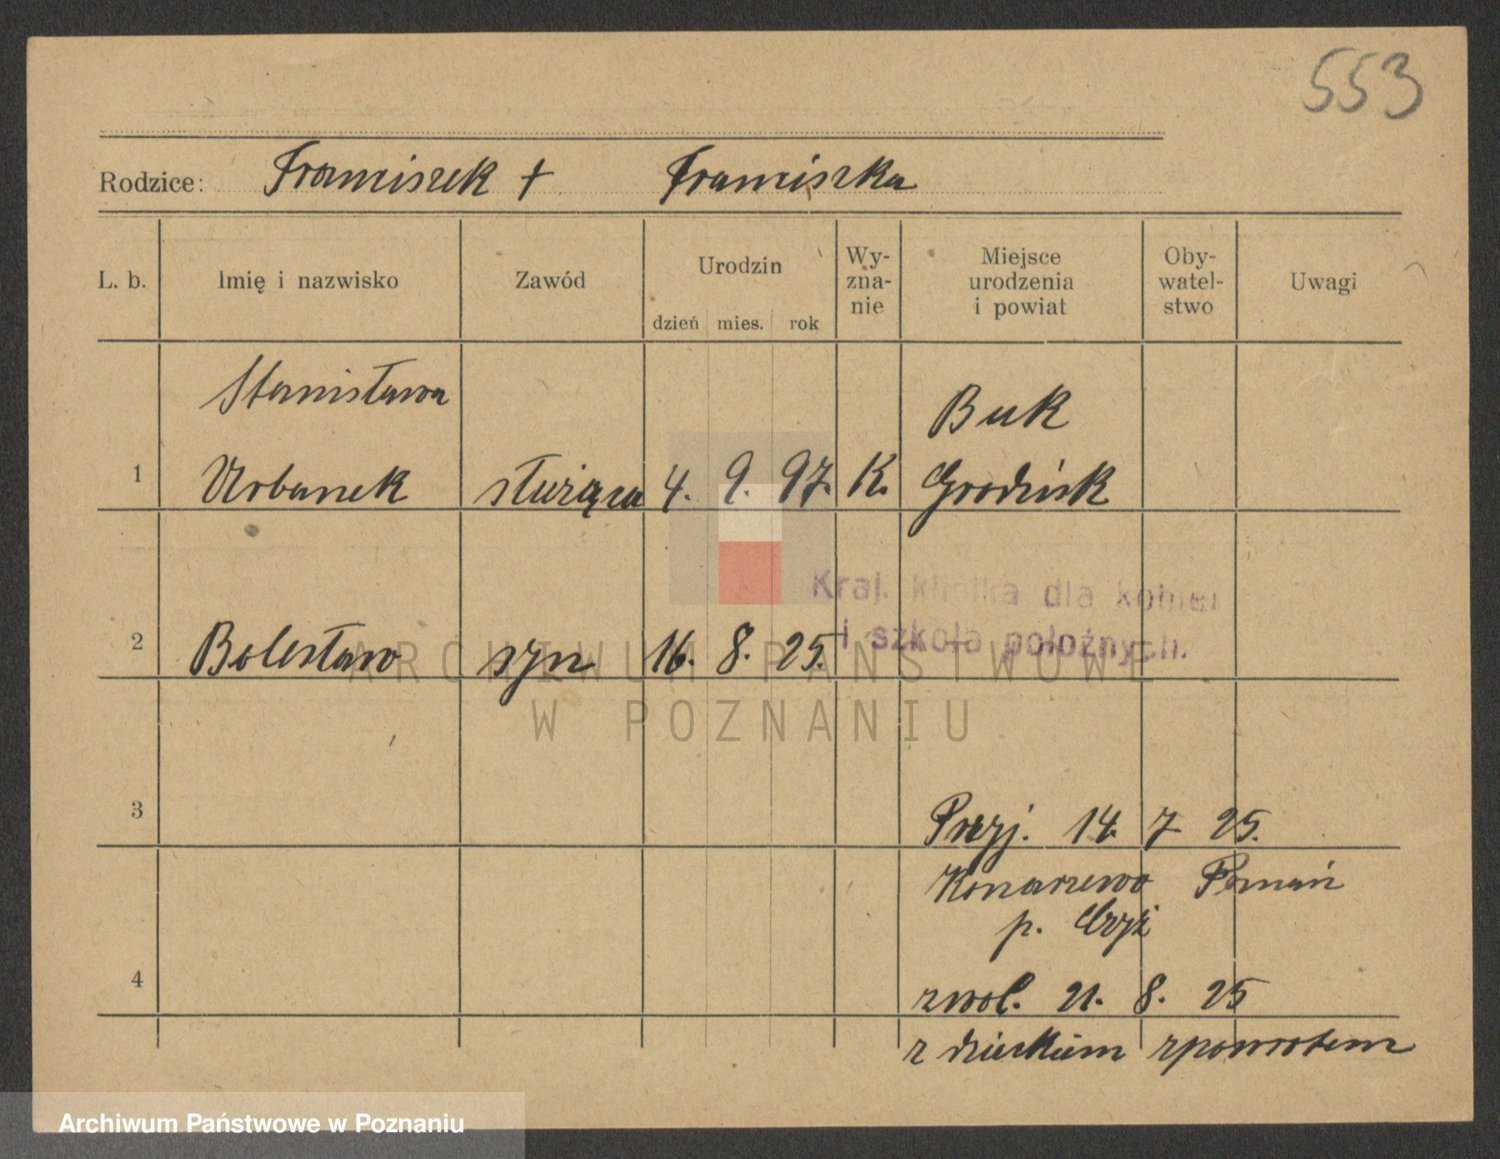 553
Rodzice: Franciszek + Franciszka
L. b. Imię i nazwisko Zawód Urodzin dzień mies. rok Wy-zna-nie Miejsce urodzenia i powiat Oby-watel-stwo Uwagi
Stanisława Buk
1 Urbanek służąca 4. 9. 97. K. Grodzisk
Kraj. klinika dla kobiet
i szkoła położnych.
2 Bolesław syn 16. 8. 25.
ARCHIWUM PAŃSTWOWE
W POZNANIU
3 Przyj. 14. 7 25.
Konarzewo Poznań
p.
4 zwol. 21. 8. 25
z dzieckiem zpowrotem
Archiwum Państwowe w Poznaniu